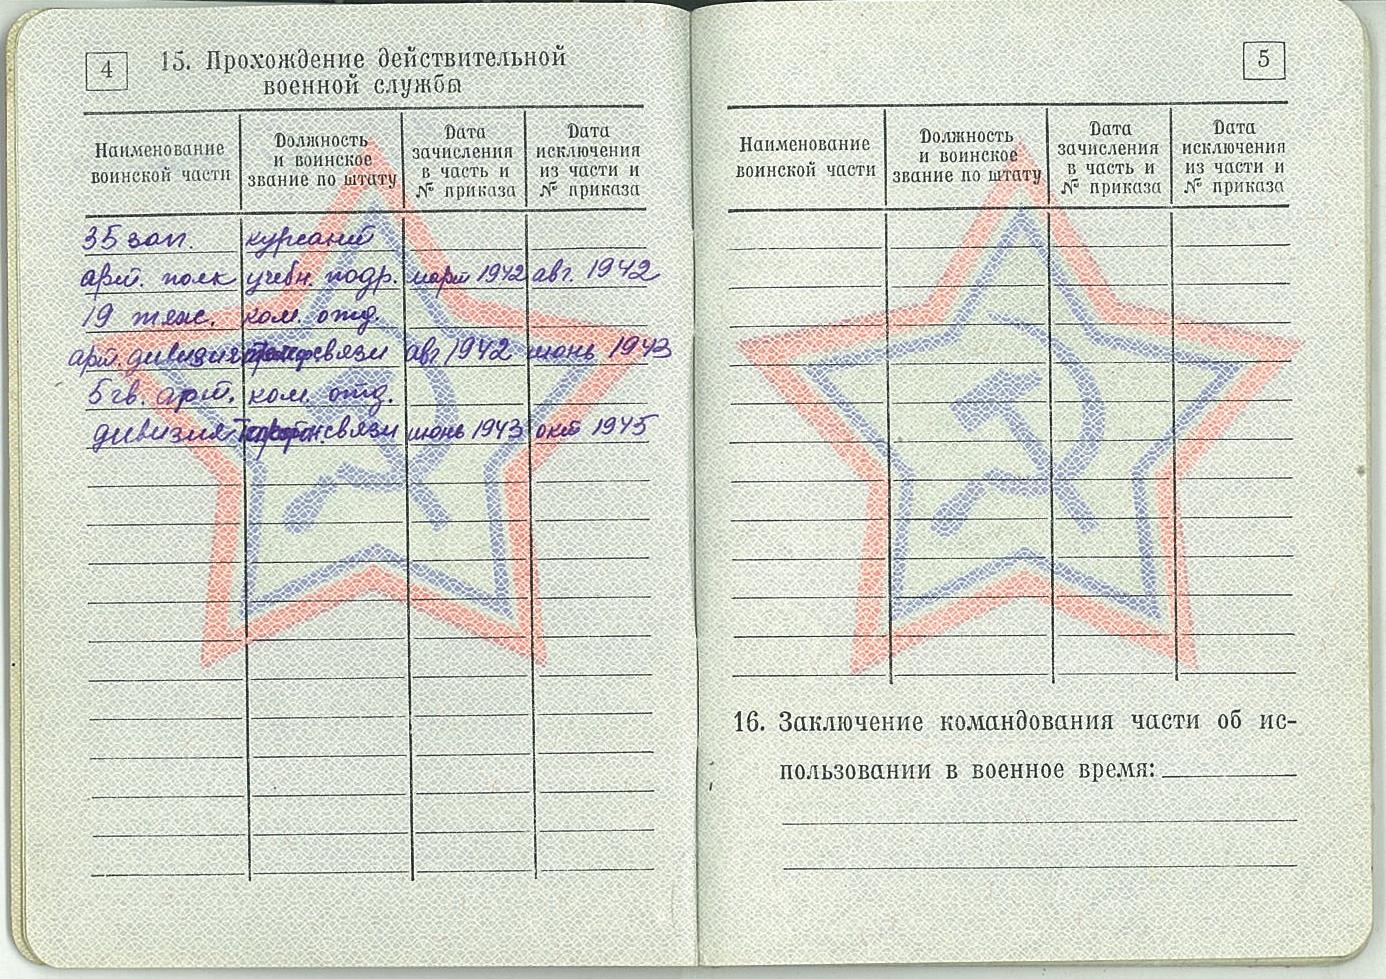 4
15. Прохождение действительной
военной службы
Наименование
воинской части
Должность
и воинское
звание по штату
Дата
зачисления
в часть и
№ приказа
Дата
исключения
из части и
№ приказа
35 зап. курсант
арт. полк учебн. подр. март 1942 авг. 1942
19 тяж. ком. отд.
арт. дивизия связи авг 1942 июнь 1943
5 гв. арт. ком. отд.
дивизия связи июнь 1943 окт 1945
5
Наименование
воинской части
Должность
и воинское
звание по штату
Дата
зачисления
в часть и
№ приказа
Дата
исключения
из части и
№ приказа
16. Заключение командования части об ис-
пользовании в военное время: